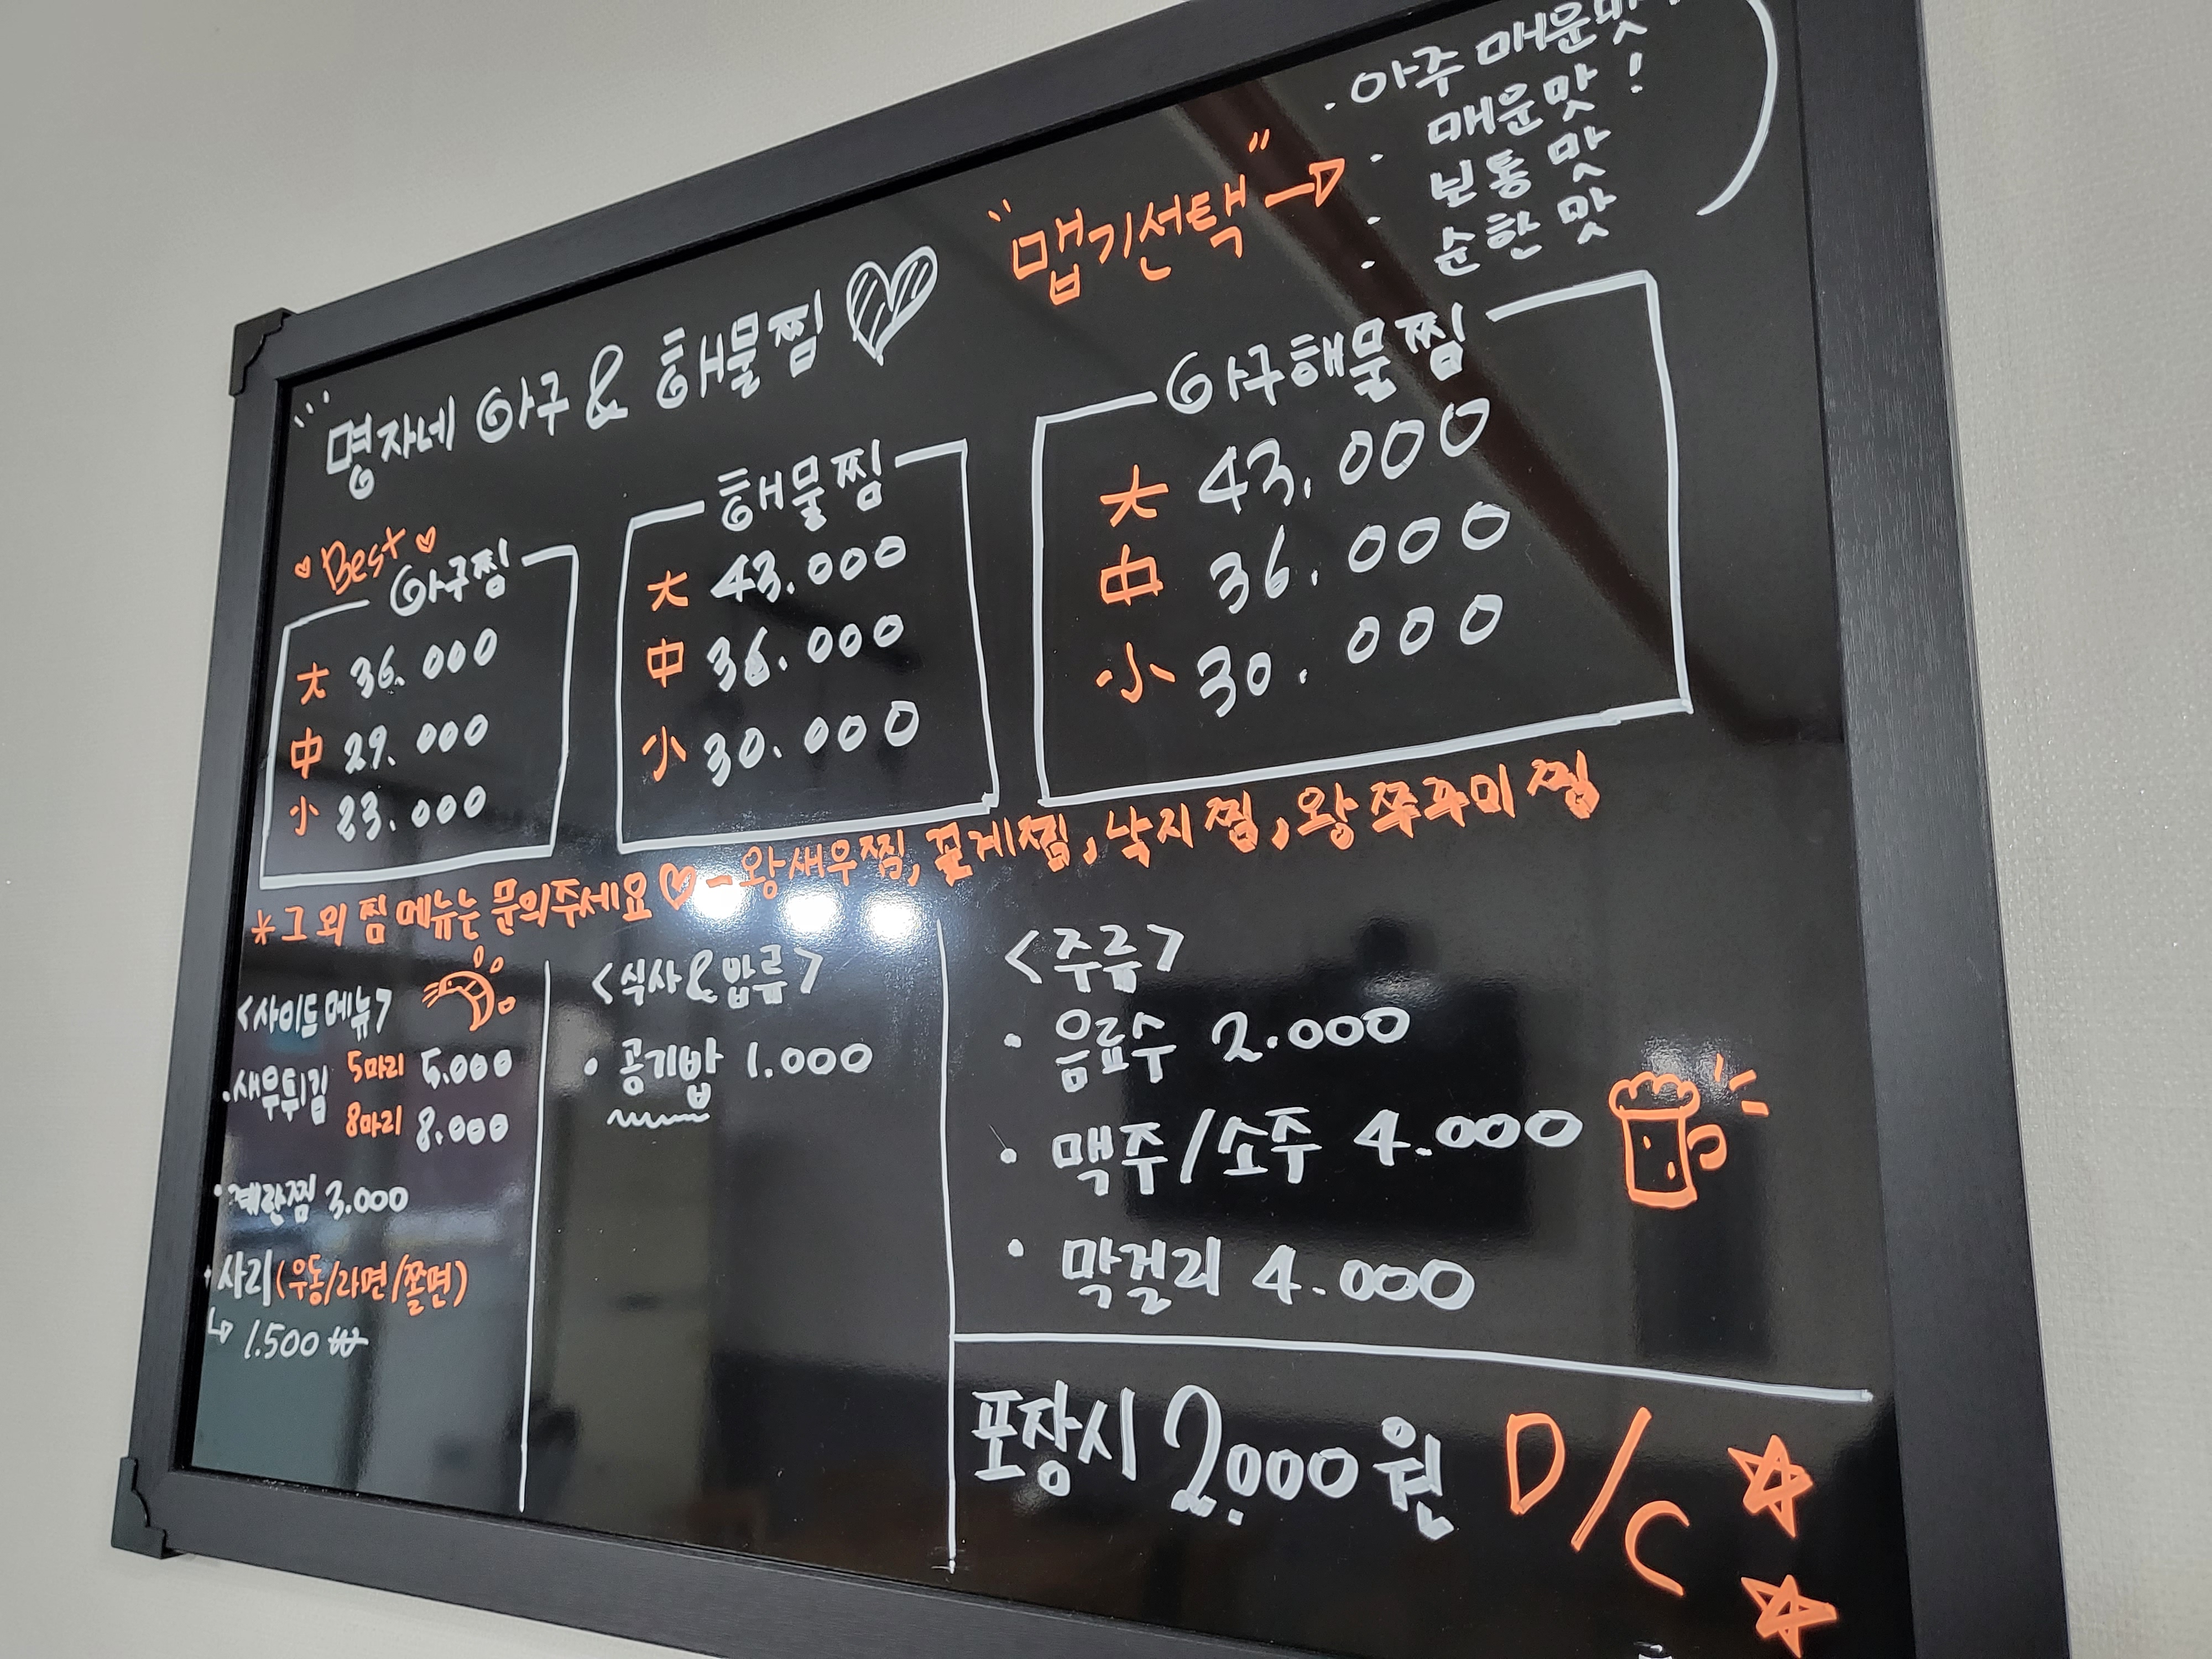 명자네 아구 & 해물찜
"맵기선택"
· 아주 매운맛
· 매운맛!
· 보통맛
· 순한맛
Best
아구찜
大 36.000
中 29.000
小 23.000
해물찜
大 43.000
中 36.000
小 30.000
아구해물찜
大 43.000
中 36.000
小 30.000
*그 외 찜 메뉴는 문의주세요♡-왕새우찜, 꽃게찜, 낙지찜, 왕쭈꾸미찜
<사이드메뉴>
·새우튀김 5마리 5.000
8마리 8.000
·계란찜 3.000
·사리(우동/라면/쫄면)
↳ 1.500₩
<식사&밥류>
· 공기밥 1.000
<주류>
· 음료수 2.000
· 맥주/소주 4.000
· 막걸리 4.000
포장시 2.000원 D/C